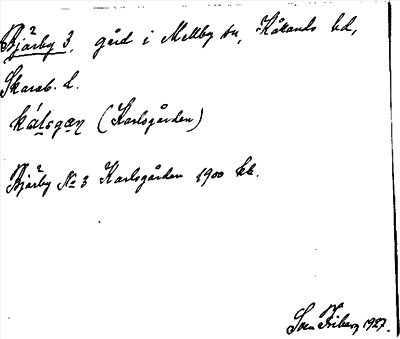 Bjärby 3, gård i Mellby sn, Kållands hd,
Skarab. l.
kálsgæn (Karlsgården)
Bjärby No 3 Karlsgården 1900 kb.
Sven Friberg 1927.